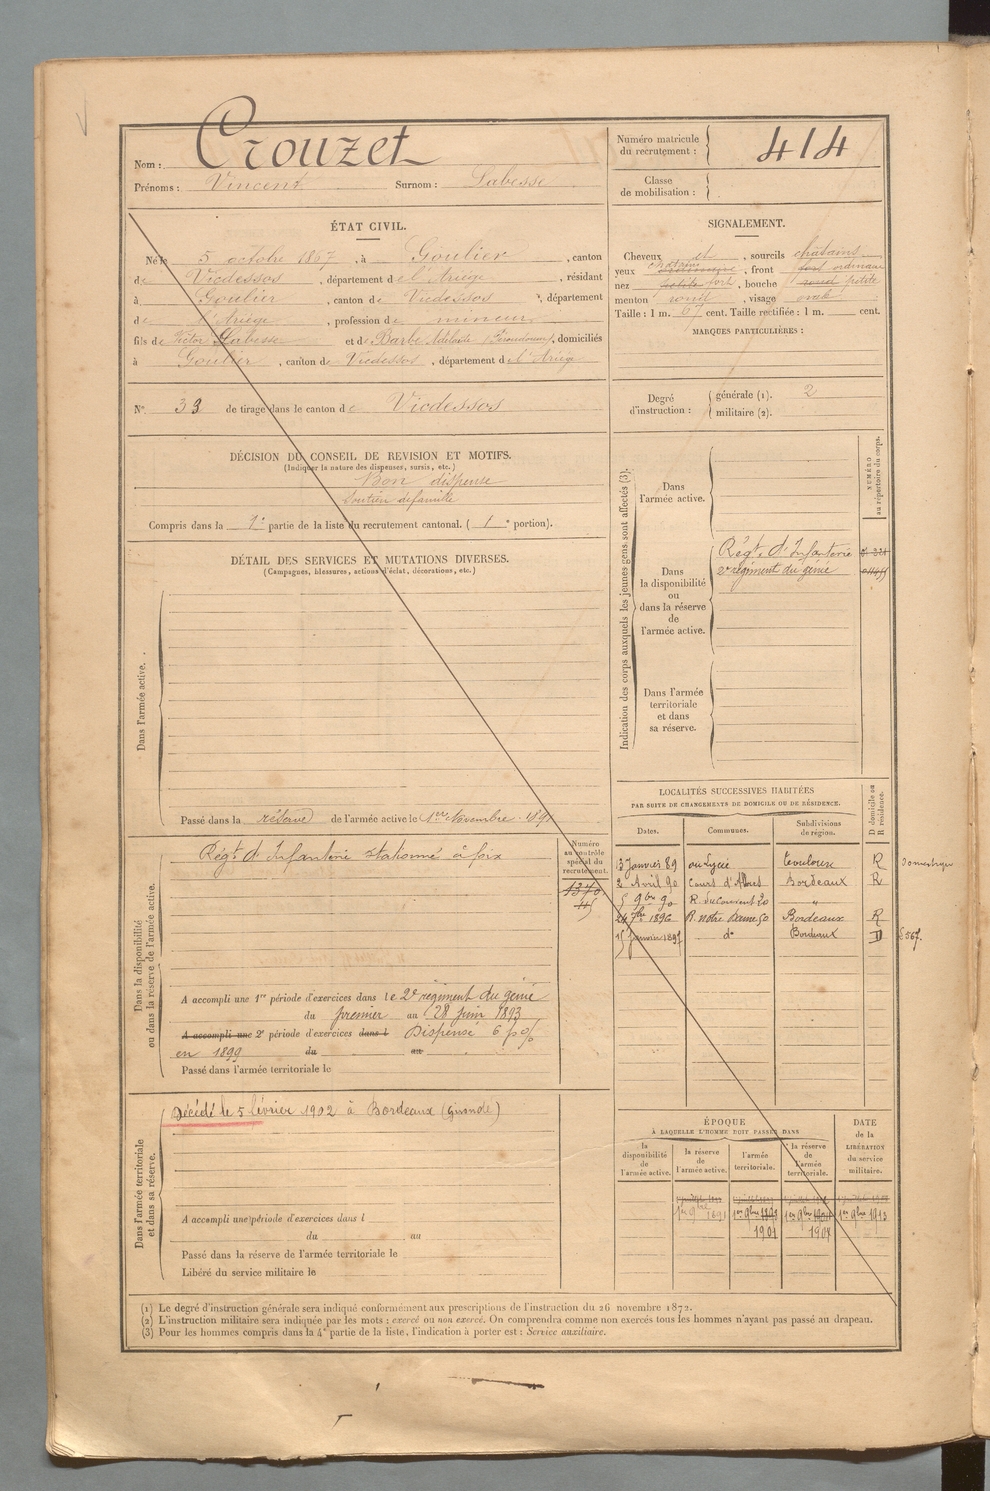 Nom : Crouzet
Prénoms : Vincent Surnom : Labesse
Numéro matricule du recrutement : 414
Classe de mobilisation :
ÉTAT CIVIL.
Né le 5 octobre 1867, à Goulier, canton
de Vicdessos, département de l'Ariège, résidant
à Goulier, canton de Vicdessos, département
de l'Ariège, profession de mineur
fils de Victor Labesse et de Barbe Adelaïde, domiciliés
à Goulier, canton de Vicdessos, département de l'Ariège
N° 33 de tirage dans le canton de Vicdessos
SIGNALEMENT.
Cheveux et, sourcils châtains
yeux châtains, front fort ordinaire
nez fort, bouche rond petite
menton rond, visage ovale
Taille : 1 m. 67 cent. Taille rectifiée : 1 m. cent.
MARQUES PARTICULIÈRES :
Degré d'instruction : générale (1). 2
militaire (2).
DÉCISION DU CONSEIL DE REVISION ET MOTIFS.
(Indiquer la nature des dispenses, sursis, etc.)
Bon dispensé
Soutien de famille
Compris dans la 1e partie de la liste du recrutement cantonal. ( 1e portion).
DÉTAIL DES SERVICES ET MUTATIONS DIVERSES.
(Campagnes, blessures, actions d'éclat, décorations, etc.)
Dans l'armée active.
Passé dans la réserve de l'armée active le 1er Novembre 189
Indication des corps auxquels les jeunes gens sont affectés (3).
NUMÉRO au répertoire du corps.
Dans l'armée active.
Dans la disponibilité ou dans la réserve de l'armée active.
Régt. d'Infanterie
2e régiment du génie
Dans l'armée territoriale et dans sa réserve.
Dans la disponibilité ou dans la réserve de l'armée active.
Numéro au contrôle spécial du recrutement.
Régt d'Infanterie stationné à foix
1370
45
A accompli une 1re période d'exercices dans le 2e régiment du génie
du premier au 28 juin 1893
A accompli une 2e période d'exercices dans l Dispensé 6 p %
en 1899 du au
Passé dans l'armée territoriale le
LOCALITÉS SUCCESSIVES HABITÉES
PAR SUITE DE CHANGEMENTS DE DOMICILE OU DE RÉSIDENCE.
D domicile ou R résidence.
Dates. Communes. Subdivisions de région.
13 Janvier 89 au Lycée Toulouse R Domestique
2 Avril 90 Cours d'Albret Bordeaux R
5 9bre 90 R. du Couvent 20 "
24 7bre 1896 R. notre Dame 50 Bordeaux R
15 janvier 1897 do Bordeaux D
Dans l'armée territoriale et dans sa réserve.
Décédé le 5 février 1902 à Bordeaux (Gironde)
A accompli une période d'exercices dans l
du au
Passé dans la réserve de l'armée territoriale le
Libéré du service militaire le
ÉPOQUE
À LAQUELLE L'HOMME DOIT PASSER DANS
DATE de la LIBÉRATION du service militaire.
la disponibilité de l'armée active.
la réserve de l'armée active.
l'armée territoriale.
la réserve de l'armée territoriale.
1er 9bre 1891 1er 9bre 1891 1er 9bre 1901 1er 9bre 1913
1901 1907
(1) Le degré d'instruction générale sera indiqué conformément aux prescriptions de l'instruction du 26 novembre 1872.
(2) L'instruction militaire sera indiquée par les mots : exercé ou non exercé. On comprendra comme non exercés tous les hommes n'ayant pas passé au drapeau.
(3) Pour les hommes compris dans la 4e partie de la liste, l'indication à porter est : Service auxiliaire.